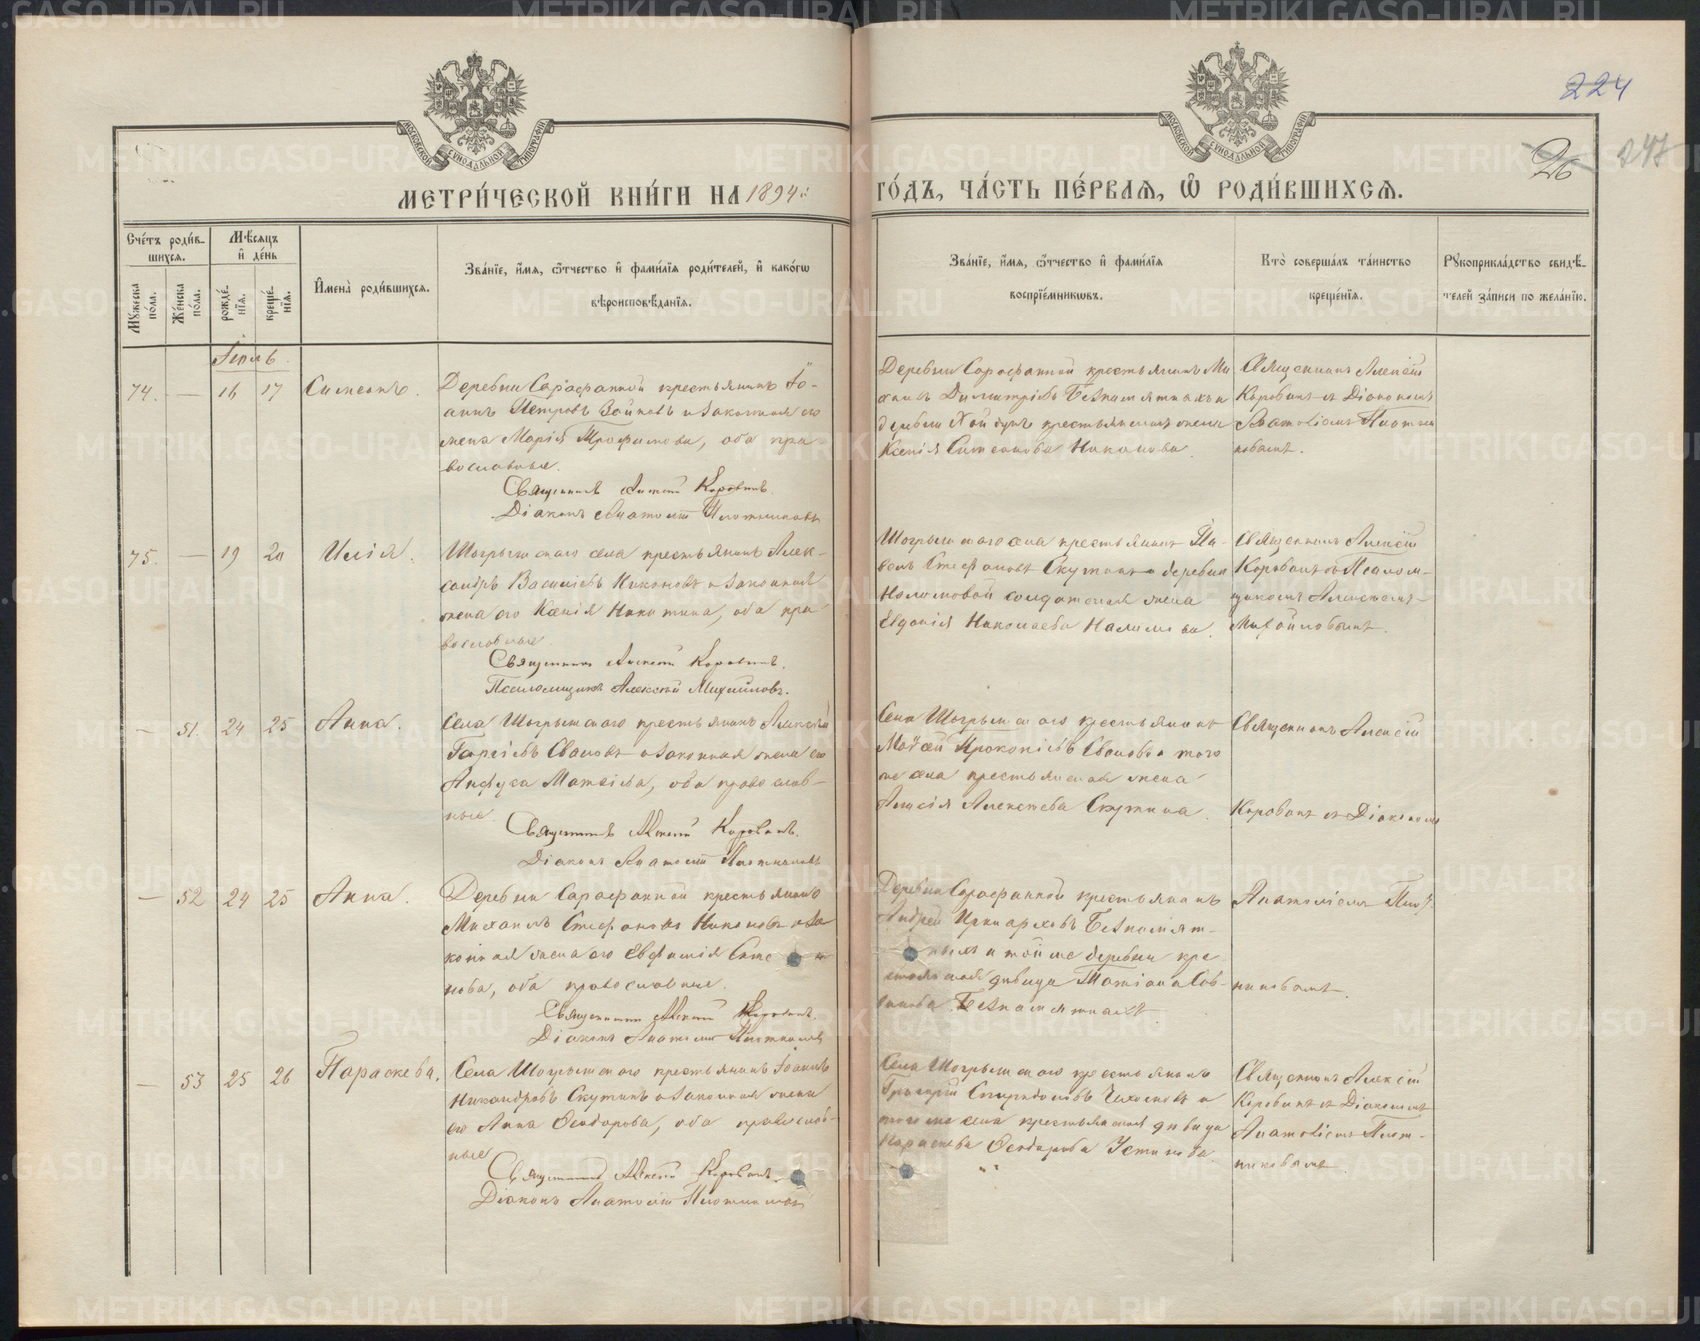 224
26
247
МОСКОВСКОЙ СѴНОДАЛЬНОЙ ТИПОГРАФІИ
МОСКОВСКОЙ СѴНОДАЛЬНОЙ ТИПОГРАФІИ
МЕТРИ́ЧЕСКОЙ КНИ́ГИ НА 1894й
ГО́ДЪ, ЧА́СТЬ ПЕ́РВАѦ, Ѽ РОДИ́ВШИХСѦ.
Сче́тъ роди́в-
шихся.
Мѣ́сяцъ
и҆ де́нь
Мꙋжеска пола.
Же́нска по́ла.
рожде́нїя.
креще́нїя.
И҆мена̀ роди́вшихся.
Зва́нїе, и҆́мя, ѻ҆́тчество и҆ фами́лїя роди́телей, и҆ како́гѡ
вѣроисповѣ́данїя.
Зва́нїе, и҆́мя, ѻ҆́тчество и҆ фами́лїя
воспрїе́мникѡвъ.
Кто̀ соверша́лъ та́инство
креще́нїя.
Рꙋкоприкла́дство свидѣ́-
телей за́писи по жела́нїю.
Іюль
74. — 16 17 Симеонъ.
Деревни Сарафанной крестьянинъ Іо-
аннъ Петровъ Войновъ и законная его
жена Марія Трофимова, оба пра-
вославные.
Священникъ Алексій Коровинъ.
Діаконъ Анатолій Плотниковъ
Деревни Сарафанной крестьянинъ Ми
Димитріевъ Безпамятныхъ и
деревни крестьянская жена
Ксенія Симеонова Никонова.
Священникъ Алексій
Коровинъ съ Діакономъ
Анатоліемъ Плотни
ковымъ.
75. — 19 20 Илія.
Шогрышскаго села крестьянинъ Алек-
сандръ Василіевъ Никоновъ и законная
жена его Ксенія Никитина, оба пра
вославные
Священникъ Алексій Коровинъ.
Псаломщикъ Алексѣй Михайловъ.
Шогрышскаго села крестьянинъ Па-
велъ Стефановъ Скутинъ и деревни
солдатская жена
Евдокія Николаева Налимова.
Священникъ Алексій
Коровинъ съ Псалом-
щикомъ Алексѣемъ
Михайловымъ.
— 51. 24 25 Анна.
Села Шогрышскаго крестьянинъ Алексѣй
Георгіевъ и законная жена его
Анфуса Матѳіева, оба православ-
ные.
Священникъ Алексій Коровинъ.
Діаконъ Анатолій Плотниковъ
Села Шогрышскаго крестьянинъ
Моѵсей Прокопіевъ и того
же села крестьянская жена
Алексѣева Скутина.
Священникъ Алексій
Коровинъ съ Діакономъ
— 52 24 25 Анна.
Деревни Сарафанной крестьянинъ
Михаилъ Стефановъ Никоновъ и за
конная жена его Евфимія
нова, оба православные.
Священникъ Алексій Коровинъ.
Діаконъ Анатолій Плотниковъ
Деревни Сарафанной крестьянинъ
Андрей Безпамят-
ныхъ и той же деревни кре-
стьянская дѣвица Татіана Сав-
Безпамятныхъ.
Анатоліемъ Плот-
никовымъ.
— 53 25 26 Параскева.
Села Шогрышскаго крестьянинъ Іоаннъ
Никандровъ Скутинъ и законная жена
его Анна Ѳеодорова, оба православ-
ные
Священникъ Алексій Коровинъ.
Діаконъ Анатолій Плотниковъ
Села Шогрышскаго крестьянинъ
Григорій Спиридоновъ и
того же села крестьянская дѣвица
Параскева Ѳеодорова Устинова.
Священникъ Алексій
Коровинъ съ Діакономъ
Анатоліемъ Плот-
никовымъ.
METRIKI.GASO-URAL.RU